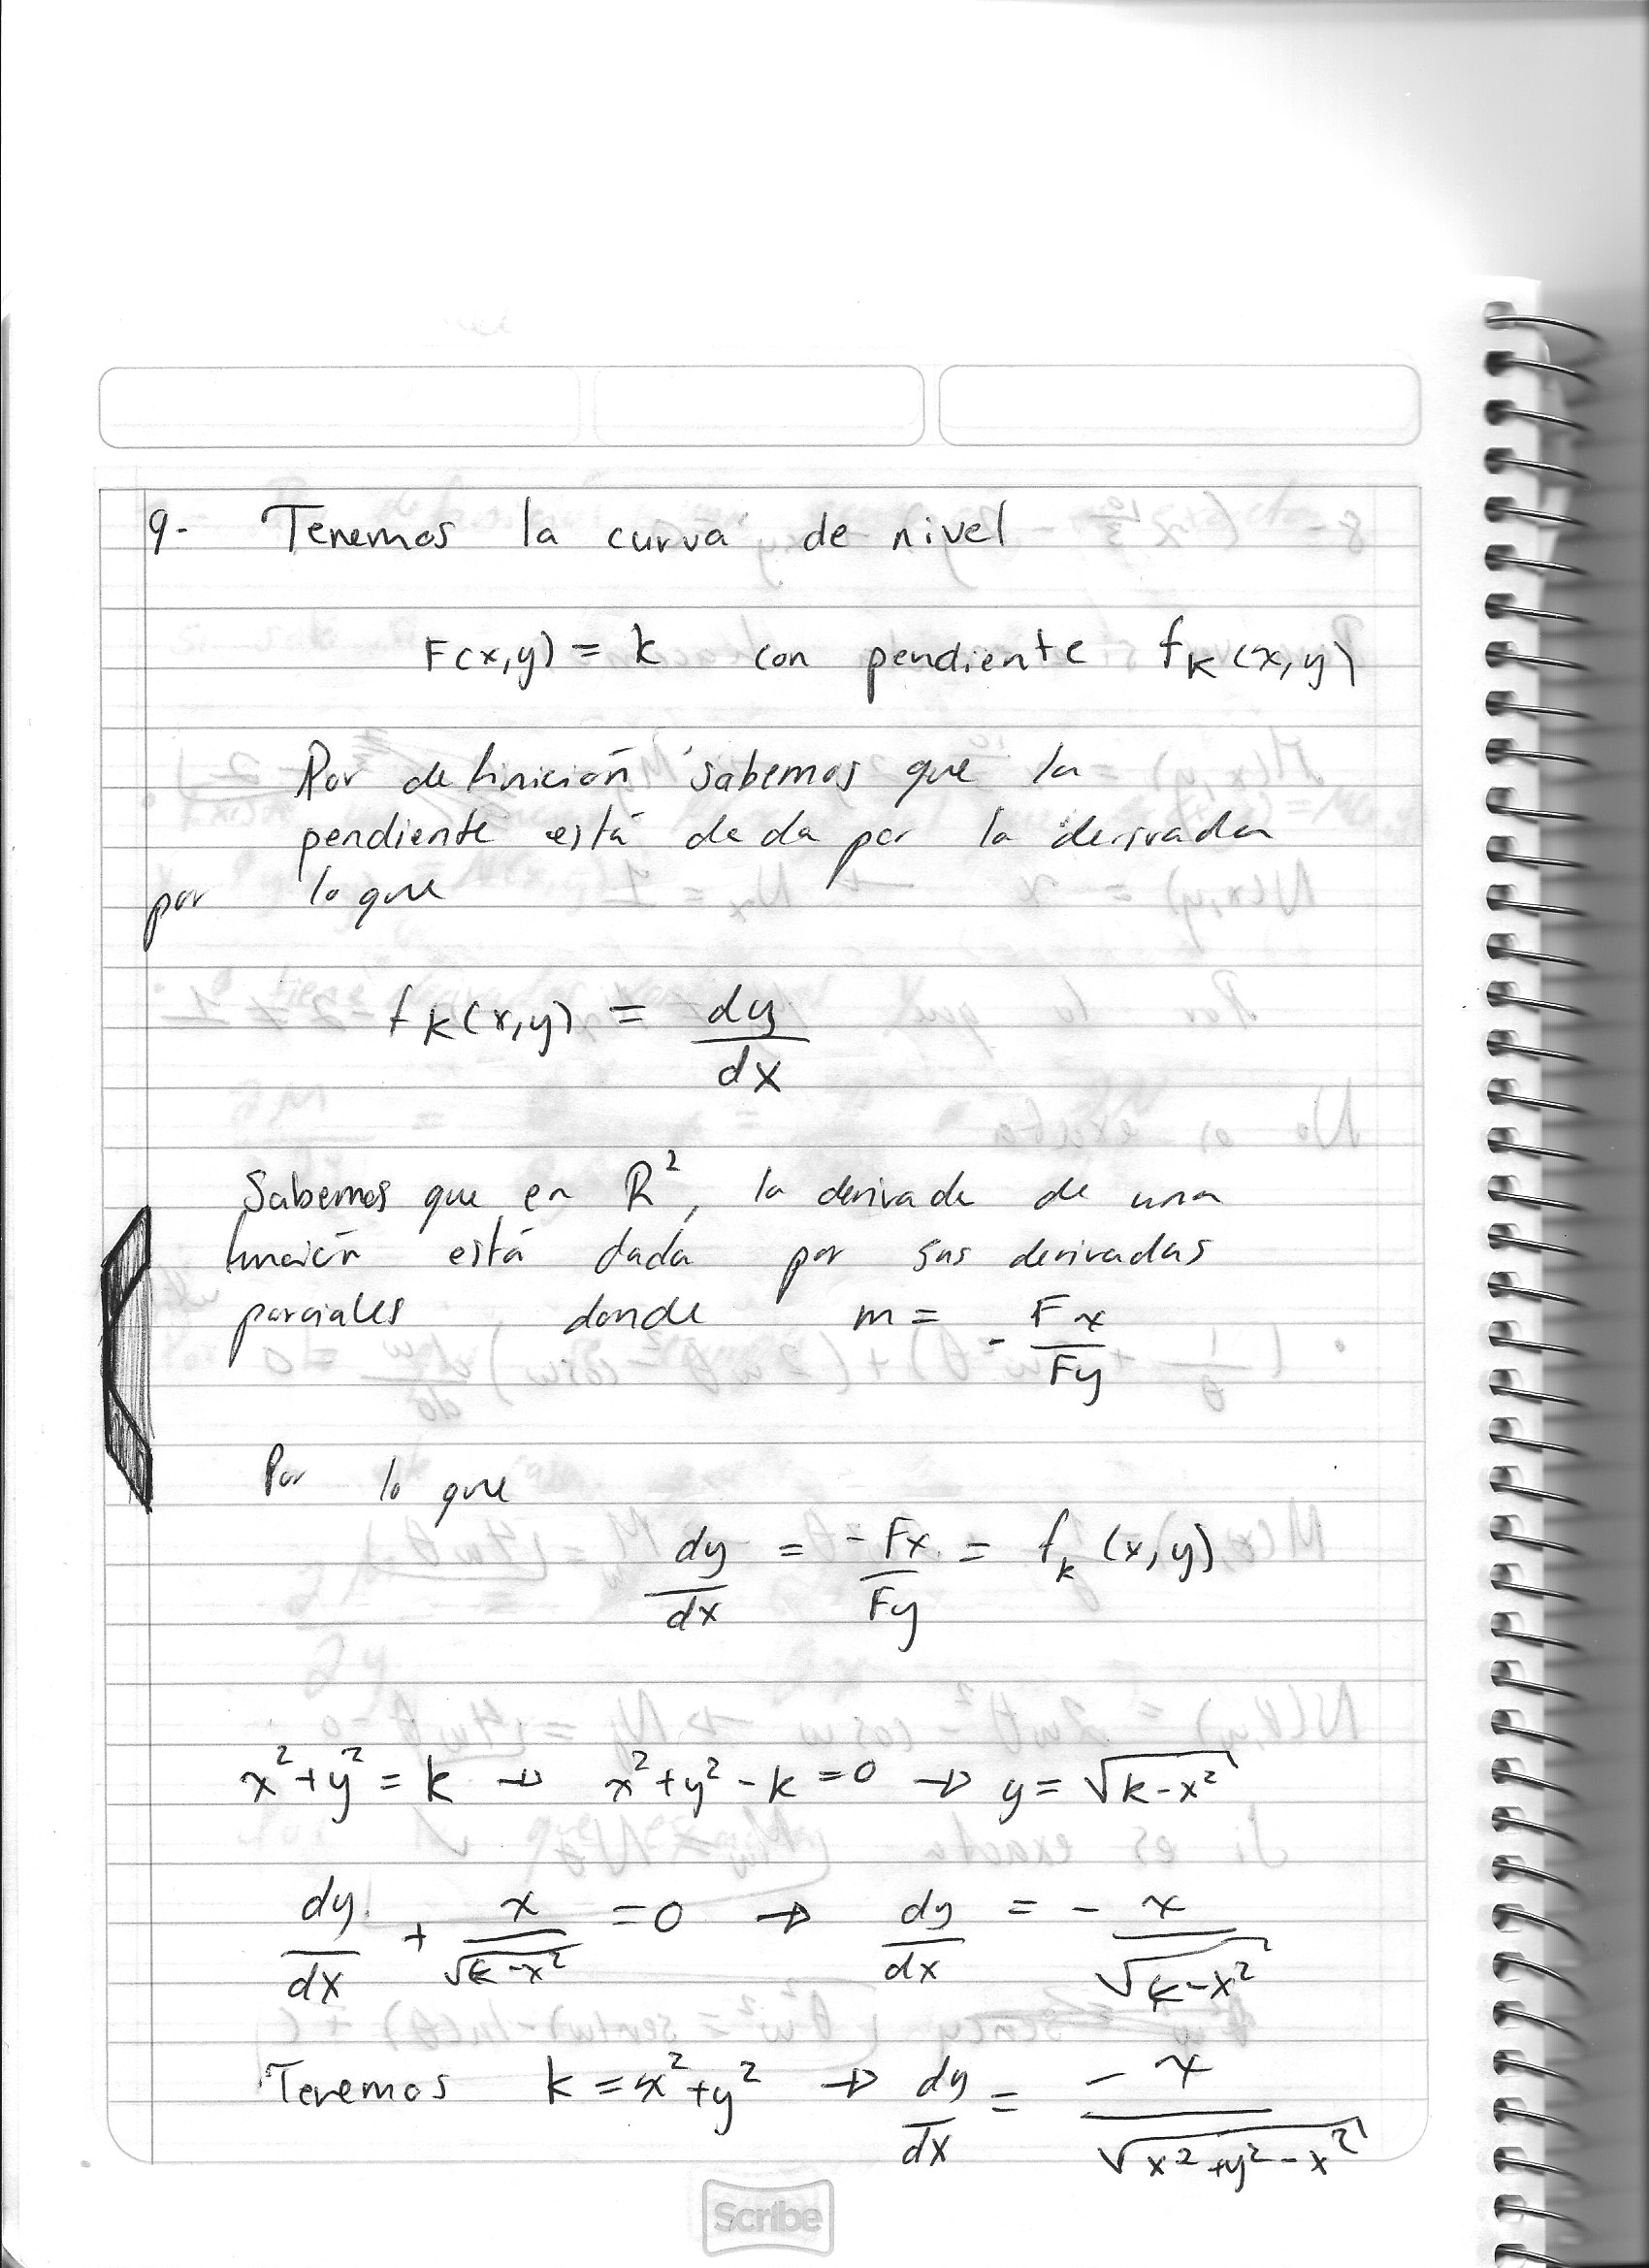 9- Tenemos la curva de nivel
F(x,y) = k con pendiente f_k(x,y)
Por definición sabemos que la
pendiente está dada por la derivada
por lo que
f_k(x,y) = dy/dx
Sabemos que en R², la derivada de una
función está dada por sus derivadas
parciales donde m = - Fx/Fy
Por lo que
dy/dx = -Fx/Fy = f_k(x,y)
x²+y² = k → x²+y²-k=0 → y = √(k-x²)
dy/dx + x/√(k-x²) = 0 → dy/dx = - x/√(k-x²)
Tenemos k = x²+y² → dy/dx = -x/√(x²+y²-x²)
Scribe